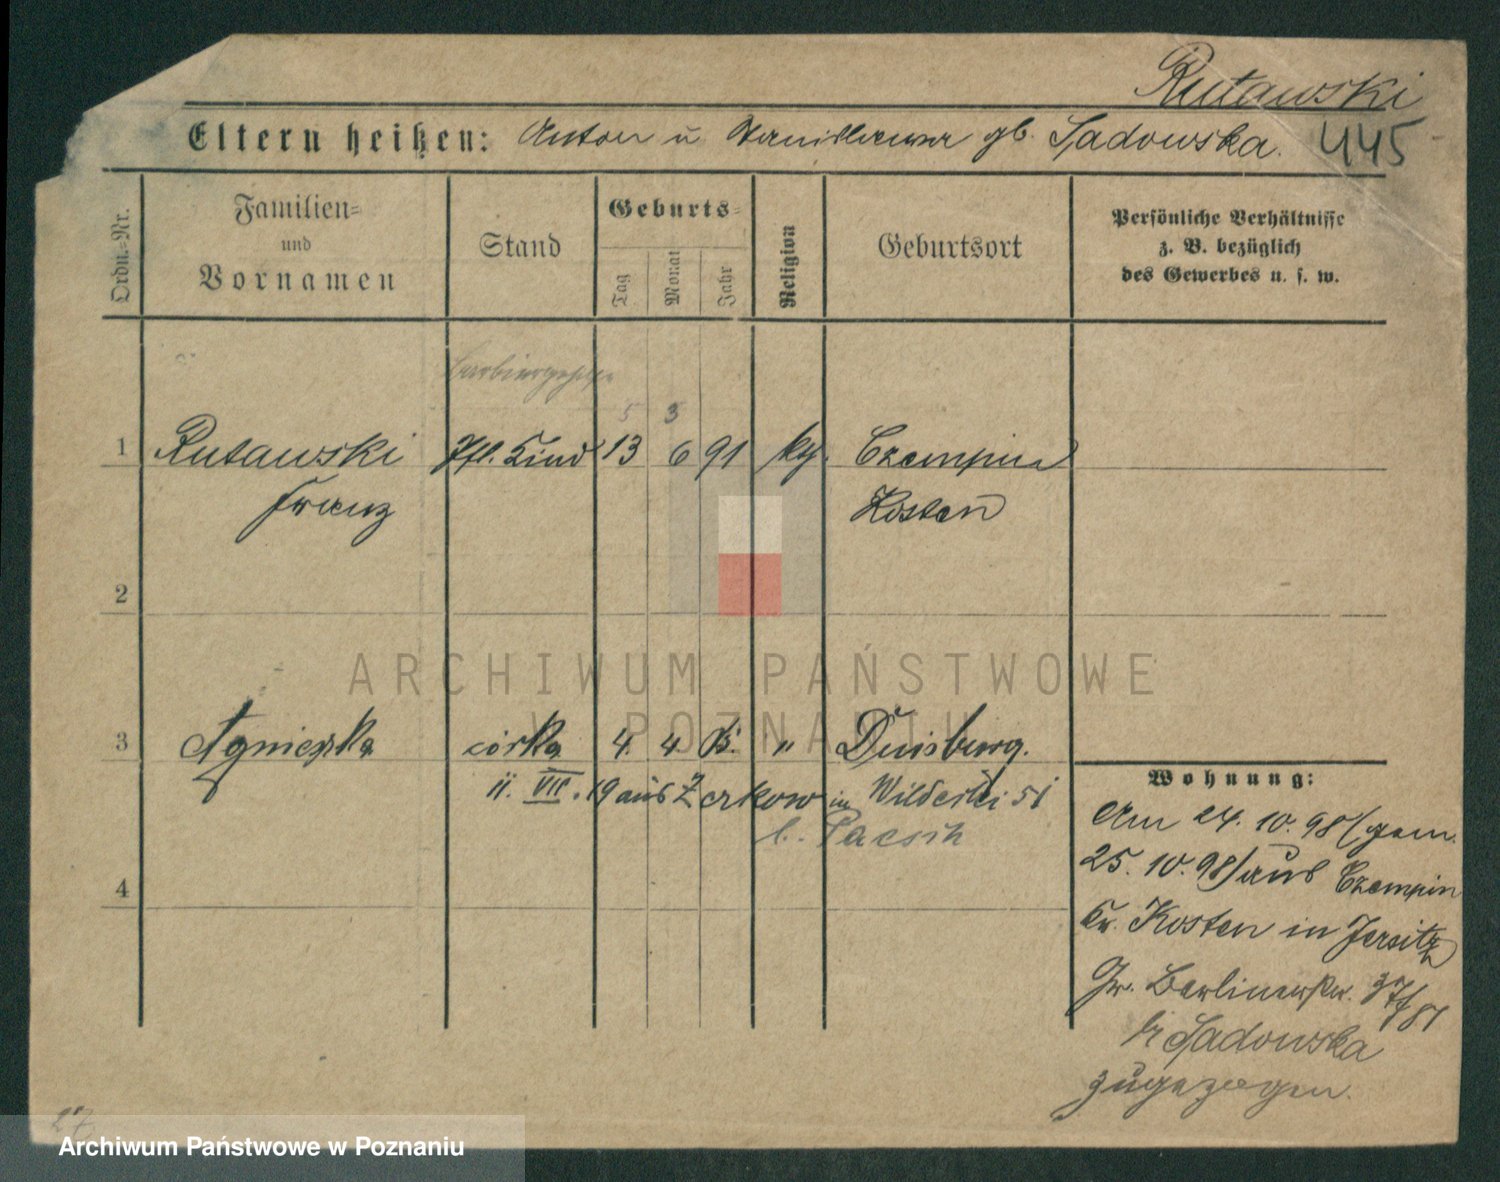 Rutawski
Eltern heißen: Anton u Stanislawa gb. Sadowska. 445
Ordn.-Nr.
Familien- und Vornamen
Stand
Geburts-
Tag Monat Jahr
Religion
Geburtsort
Persönliche Verhältnisse
z. B. bezüglich
des Gewerbes u. s. w.
5 3
1 Rutawski Pfl. Kind 13 6 91 kg. Czempin
Franz Kosten
2
ARCHIWUM PAŃSTWOWE
W POZNANIU
3 Agnieszka córka 4. 4. " Duisburg.
11. VII. 19 aus Zerkow in 51
b.
4
Wohnung:
Am 24. 10. 98 (gem.
25. 10. 98) aus Czempin
Kr. Kosten in Jersitz
Gr. Berlinerstr.
b Sadowska
zugezogen.
27
Archiwum Państwowe w Poznaniu